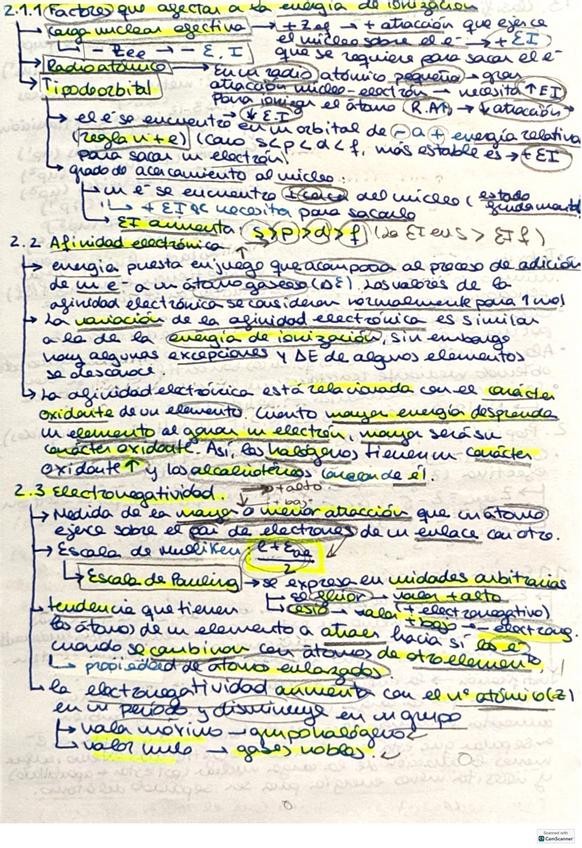 2.1.1 Factores que afectan a la energía de ionización
Carga nuclear efectiva → + Zef → + atracción que ejerce
el núcleo sobre el e⁻ → + EI
- Zef → - E.I que se requiere para sacar el e⁻
Radio atómico → En un radio atómico pequeño → gran
Tipo de orbital atracción núcleo-electrón → necesita ↑ EI
Para ionizar el átomo (R.At) → ↓ atracción
→ ↓ E.I
el e⁻ se encuentra en un orbital de - a + energía relativa
(regla n+e) (caso s<p<d<f, más estable es → + EI
para sacar un electrón)
grado de acercamiento al núcleo:
un e⁻ se encuentra + cerca del núcleo (estado
fundamental)
+ EI se necesita para sacarlo
EI aumenta: s>p>d>f (la EI en s > EI f)
2.2 Afinidad electrónica
energía puesta en juego que acompaña al proceso de adición
de un e⁻ a un átomo gaseoso (ΔE). Los valores de la
afinidad electrónica se consideran normalmente para 1 mol
La variación de la afinidad electrónica es similar
a la de la energía de ionización, sin embargo
hay algunas excepciones y ΔE de algunos elementos
se desconoce.
La afinidad electrónica está relacionada con el carácter
oxidante de un elemento. Cuanto mayor energía desprenda
un elemento al ganar un electrón, mayor será su
carácter oxidante. Así, los halógenos tienen un carácter
oxidante ↑ y los alcalinotérreos carecen de él.
2.3 Electronegatividad. → + alto
↓ + bajo
Medida de la mayor o menor atracción que un átomo
ejerce sobre el par de electrones de un enlace con otro.
Escala de Mulliken:
2
Escala de Pauling → se expresa en unidades arbitrarias
el flúor → valor + alto
cesio → valor (+ electronegativo)
+ bajo → electroneg.
tendencia que tienen
los átomos de un elemento a atraer hacia sí los e⁻
cuando se combinan con átomos de otro elemento.
propiedad de átomos enlazados.
la electronegatividad aumenta con el nº atómico (z)
en un período y disminuye en un grupo
valor máximo → grupo halógeno
valor nulo → gases nobles.
Scanned with
CamScanner